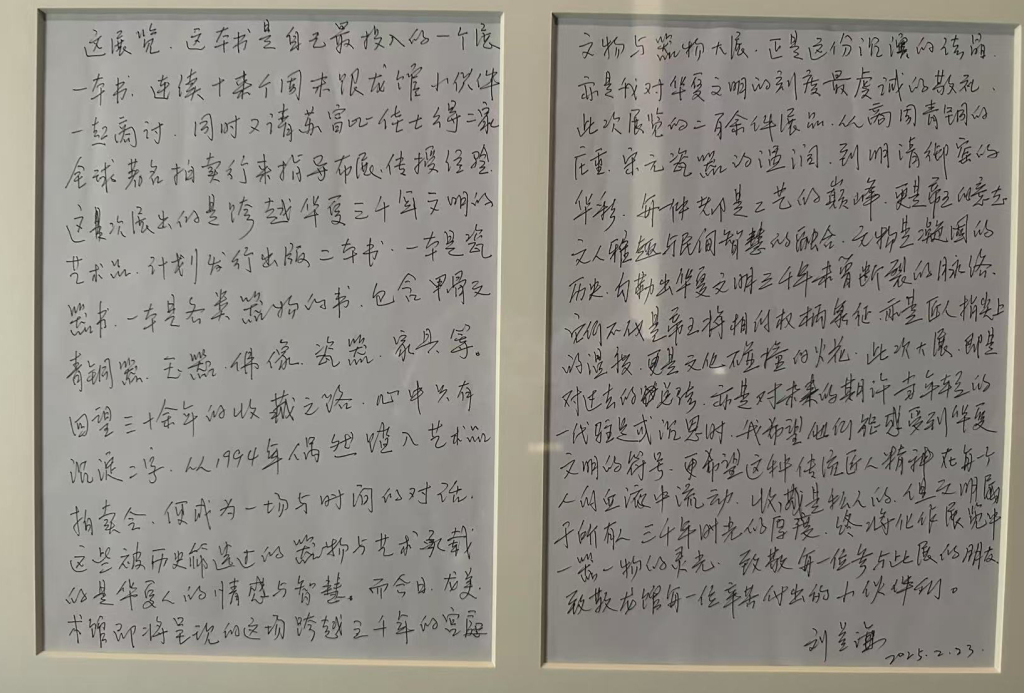 这展览、这本书是自己最投入的一个展
一本书. 连续十来个周末跟龙馆小伙伴
一起商讨. 同时又请苏富比佳士得二家
全球著名拍卖行来指导布展、传授经验.
这次展出的是跨越华夏三千年文明的
艺术品. 计划发行出版二本书. 一本是瓷
器书. 一本是各类器物的书. 包含甲骨文
青铜器. 玉器. 佛像. 瓷器. 家具等。
回望三十余年的收藏之路. 心中只有
沉淀二字. 从1994年偶然踏入艺术品
拍卖会. 便成为一场与时间的对话.
这些被历史筛选过的器物与艺术承载
的是华夏人的情感与智慧。而今日. 龙美
术馆即将呈现的这场跨越三千年的宫廷
文物与器物大展. 正是这份沉淀的结晶.
亦是我对华夏文明的刻度最虔诚的敬礼.
此次展览的二百余件展品. 从商周青铜的
庄重. 宋元瓷器的温润. 到明清御窑的
华彩. 每一件都是工艺的巅峰. 更是帝王的意志
文人雅趣与民间智慧的融合. 文物是凝固的
历史. 勾勒出华夏文明三千年未曾断裂的脉络.
它们不仅是帝王将相的权柄象征 亦是匠人指尖上
的温接. 更是文化碰撞的火花. 此次大展. 即是
对过去的总结. 亦是对未来的期许 当年轻的
一代驻足或沉思时. 我希望他们能感受到华夏
文明的符号. 更希望这种传流匠人精神在每个
人的血液中流动. 收藏是私人的. 但文明属
于所有人 三千年时光的厚度. 终将化作展览中
一器一物的灵光. 致敬每一位参与此展的朋友
致敬龙馆每一位辛苦付出的小伙伴们。
刘益谦
2025.2.23.